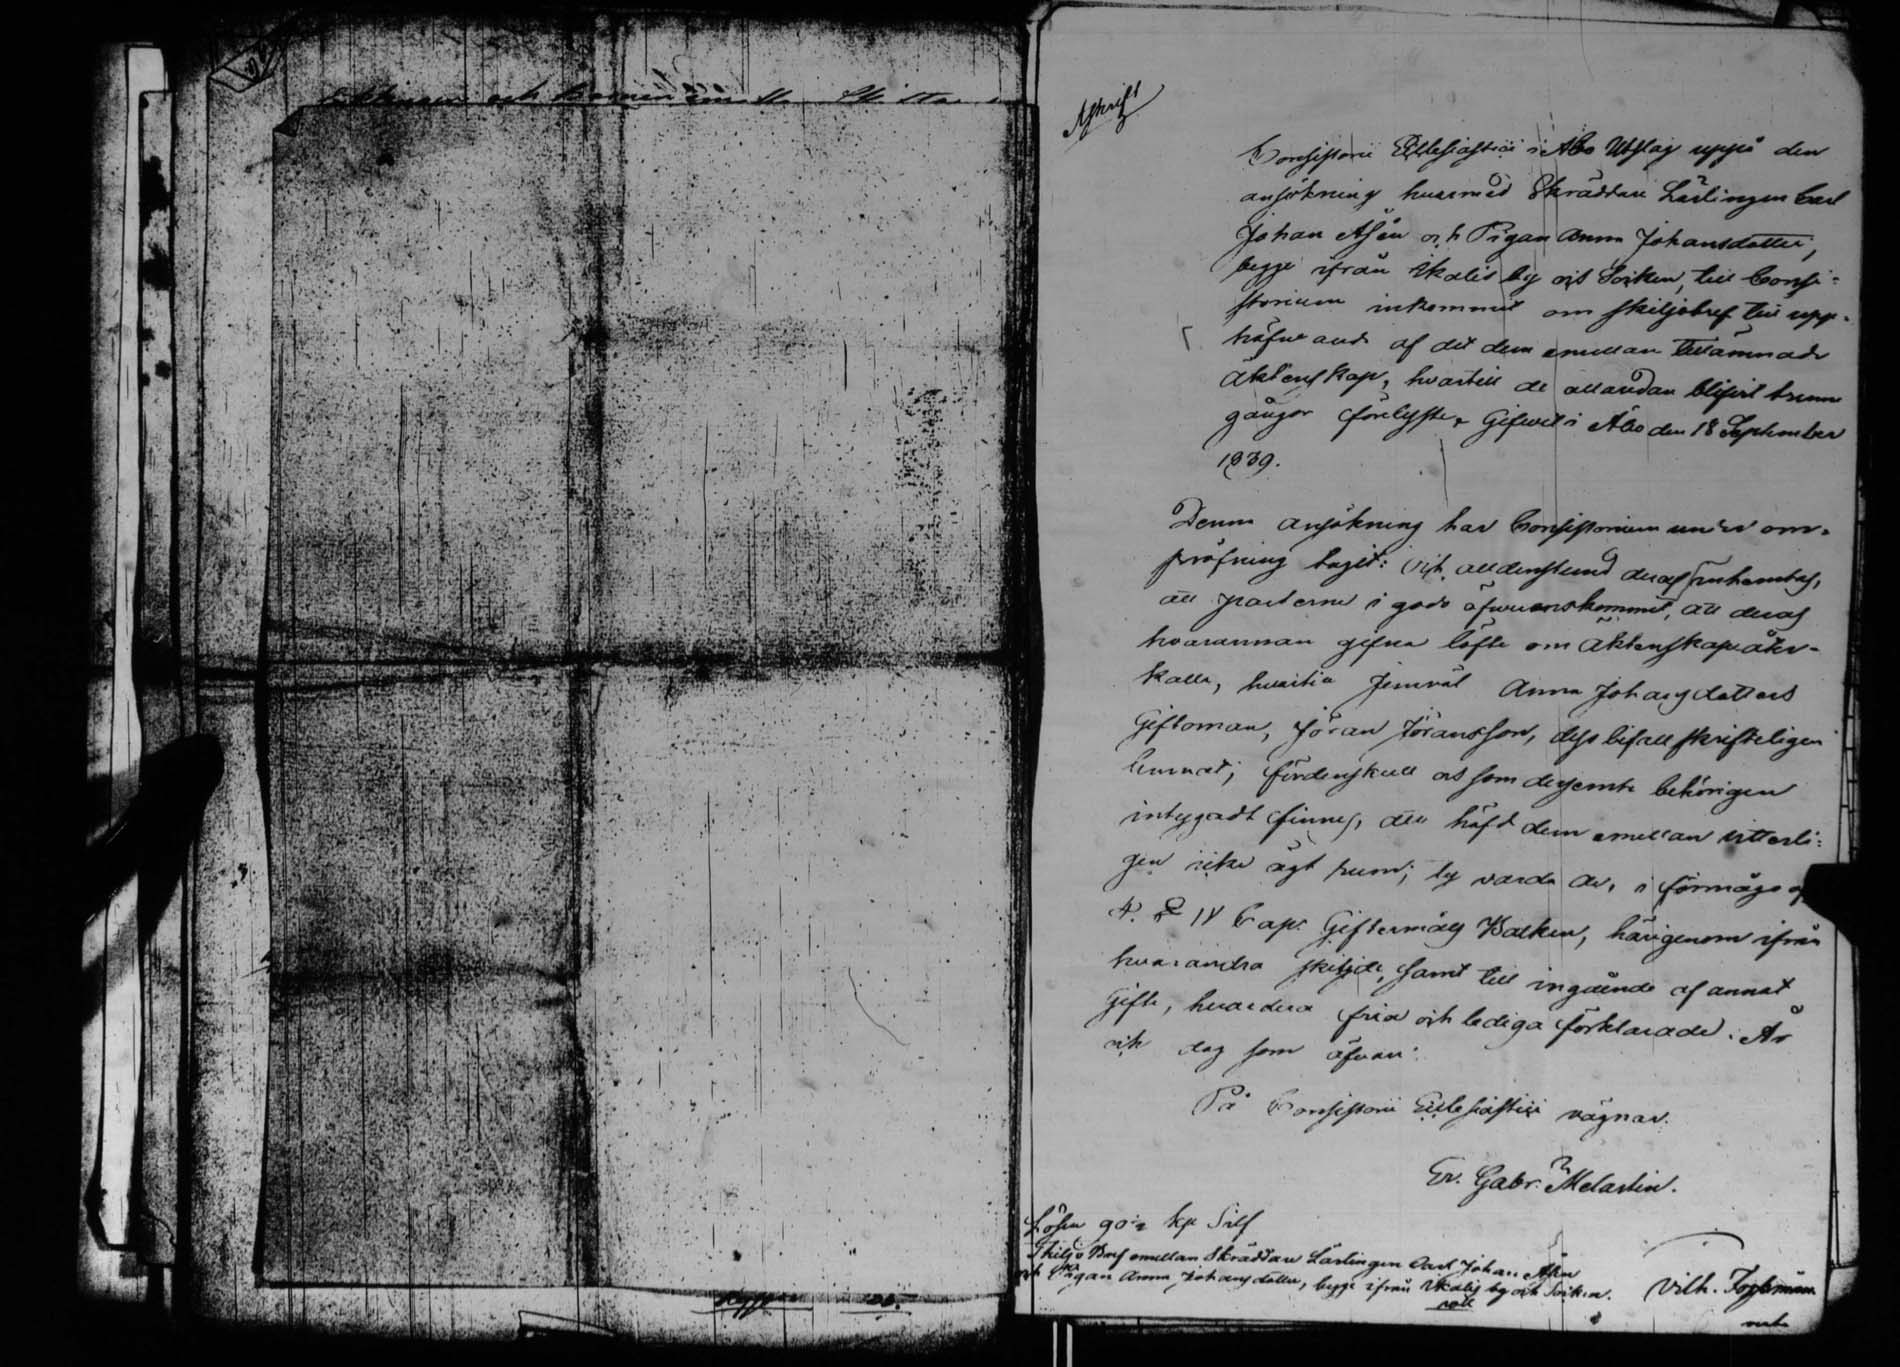 Afskrift
Consistorii Ecclesiastici i Åbo Utslag uppå den
ansökning hvarmed Skräddare Lärlingen Carl
Johan Åsén och Pigan Anna Johansdotter,
begge ifrån Ikalis by och Socken, till Consi-
storium inkommit om skiljobref till upp-
häfvande af det dem emellan tillämnade
äktenskap, hvartill de allaredan blifvit trenne
gånger förelyste, Gifvet i Åbo den 18 September
1839.
Denna ansökning har Consistorium under om-
pröfning tagit: och alldenstund deraf inhemtas,
att parterne i godo öfverenskommit, att deras
hvarannan gifna löfte om äktenskap åter-
kalla, hvartill jemväl Anna Johansdotters
Giftoman, Jöran Jöransson, dess bifall skrifteligen
lemnat; fördenskull och som dessemte behörigen
intygadt finnes, att häfd dem emellan vitterli-
gen icke ägt rum; ty varda de, i förmågo af
4. § 14 Cap. Giftermåls Balken, härigenom ifrån
hvarandra skiljde, samt till ingående af annat
Gifte, hvardera fria och lediga förklarade. År
och dag som ofvan.
På Consistorii Ecclesiastici vägnar.
Er. Gabr. Melartin.
Lösen 90 kp Silf
Skiljo Bref emellan Skräddare Lärlingen Carl Johan Åsén
och Pigan Anna Johansdotter, begge ifrån Ikalis by och Socken.
Vilh.